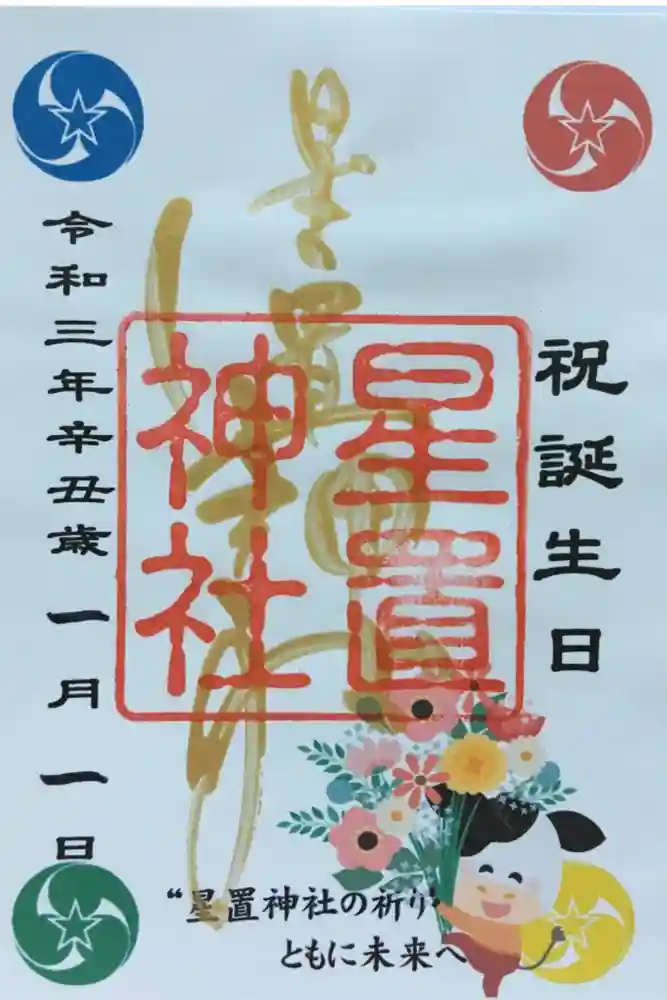 祝誕生日
星置神社
星置神社
令和三年辛丑歳一月一日
“星置神社の祈り
ともに未来へ